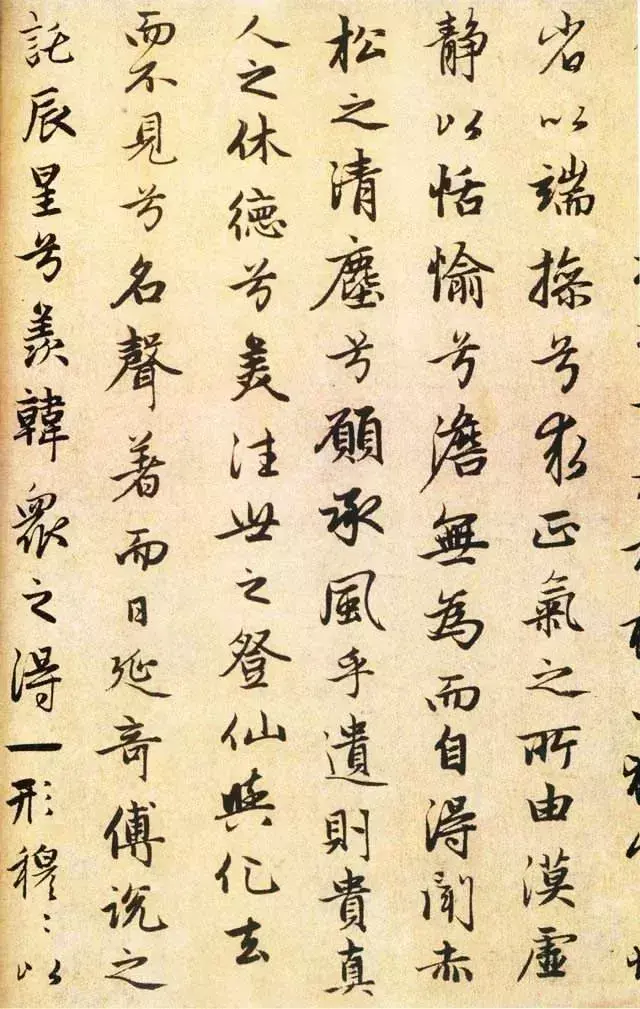 省以端操兮求正氣之所由漠虛
靜以恬愉兮澹無為而自得聞赤
松之清塵兮願承風乎遺則貴真
人之休德兮美往世之登仙與化去
而不見兮名聲著而日延奇傅說之
託辰星兮羨韓眾之得一形穆〻以